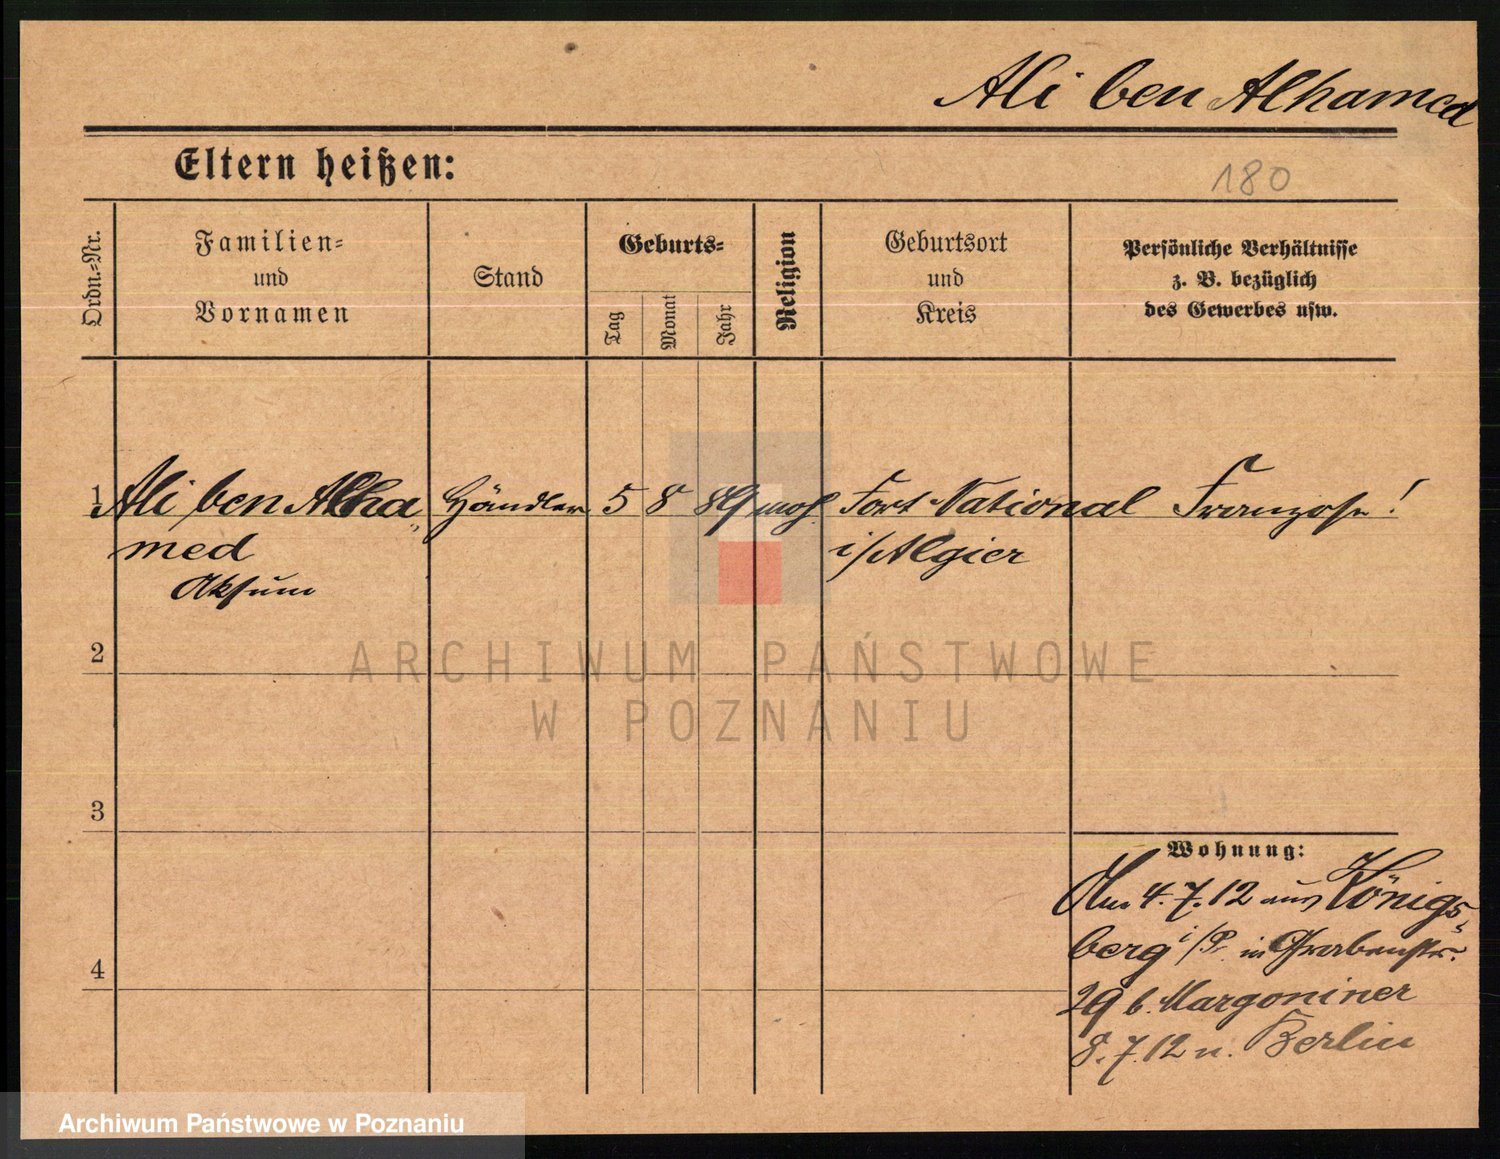 Ali ben Alhamed
Eltern heißen:
180
Ordn.-Nr.
Familien-
und
Vornamen
Stand
Geburts-
Tag
Monat
Jahr
Religion
Geburtsort
und
Kreis
Persönliche Verhältnisse
z. B. bezüglich
des Gewerbes usw.
1 Ali ben Alha„ Händler 5 8 89 moh. Fort National Franzose!
med i/Algier
Aksum
2
ARCHIWUM PAŃSTWOWE
W POZNANIU
3
Wohnung:
Am 4.7.12 aus Königs„
berg i/P. in Grabenstr.
29 b. Margoniner
4
8.7.12 n. Berlin
Archiwum Państwowe w Poznaniu